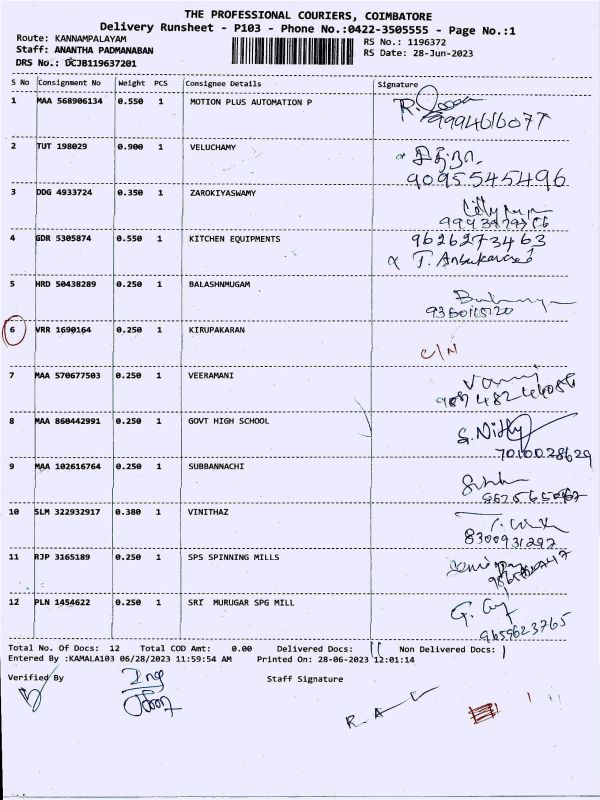 THE PROFESSIONAL COURIERS, COIMBATORE
Delivery Runsheet - P103 - Phone No.:0422-3505555 - Page No.:1
Route: KANNAMPALAYAM RS No.: 1196372
Staff: ANANTHA PADMANABAN RS Date: 28-Jun-2023
DRS No.: DCJB119637201
S No Consignment No Weight PCS Consignee Details Signature
1 MAA 568906134 0.550 1 MOTION PLUS AUTOMATION P
9994616077
2 TUT 198029 0.900 1 VELUCHAMY
9095545496
3 DDG 4933724 0.350 1 ZAROKIYASWAMY
4 GDR 5305874 0.550 1 KITCHEN EQUIPMENTS 9626273463
5 HRD 50438289 0.250 1 BALASHNMUGAM
9360165120
6 VRR 1690164 0.250 1 KIRUPAKARAN
C/N
7 MAA 570677503 0.250 1 VEERAMANI
8 MAA 860442991 0.250 1 GOVT HIGH SCHOOL
7010028629
9 MAA 102616764 0.250 1 SUBBANNACHI
10 SLM 322932917 0.380 1 VINITHAZ
8300931297
11 RJP 3165189 0.250 1 SPS SPINNING MILLS
12 PLN 1454622 0.250 1 SRI MURUGAR SPG MILL
9659623765
Total No. Of Docs: 12 Total COD Amt: 0.00 Delivered Docs: 11 Non Delivered Docs: 1
Entered By :KAMALA103 06/28/2023 11:59:54 AM Printed On: 28-06-2023 12:01:14
Verified By Staff Signature